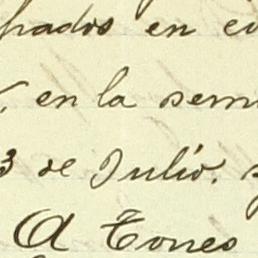 pados en
en la sem
3 de Julio.
A Toneo